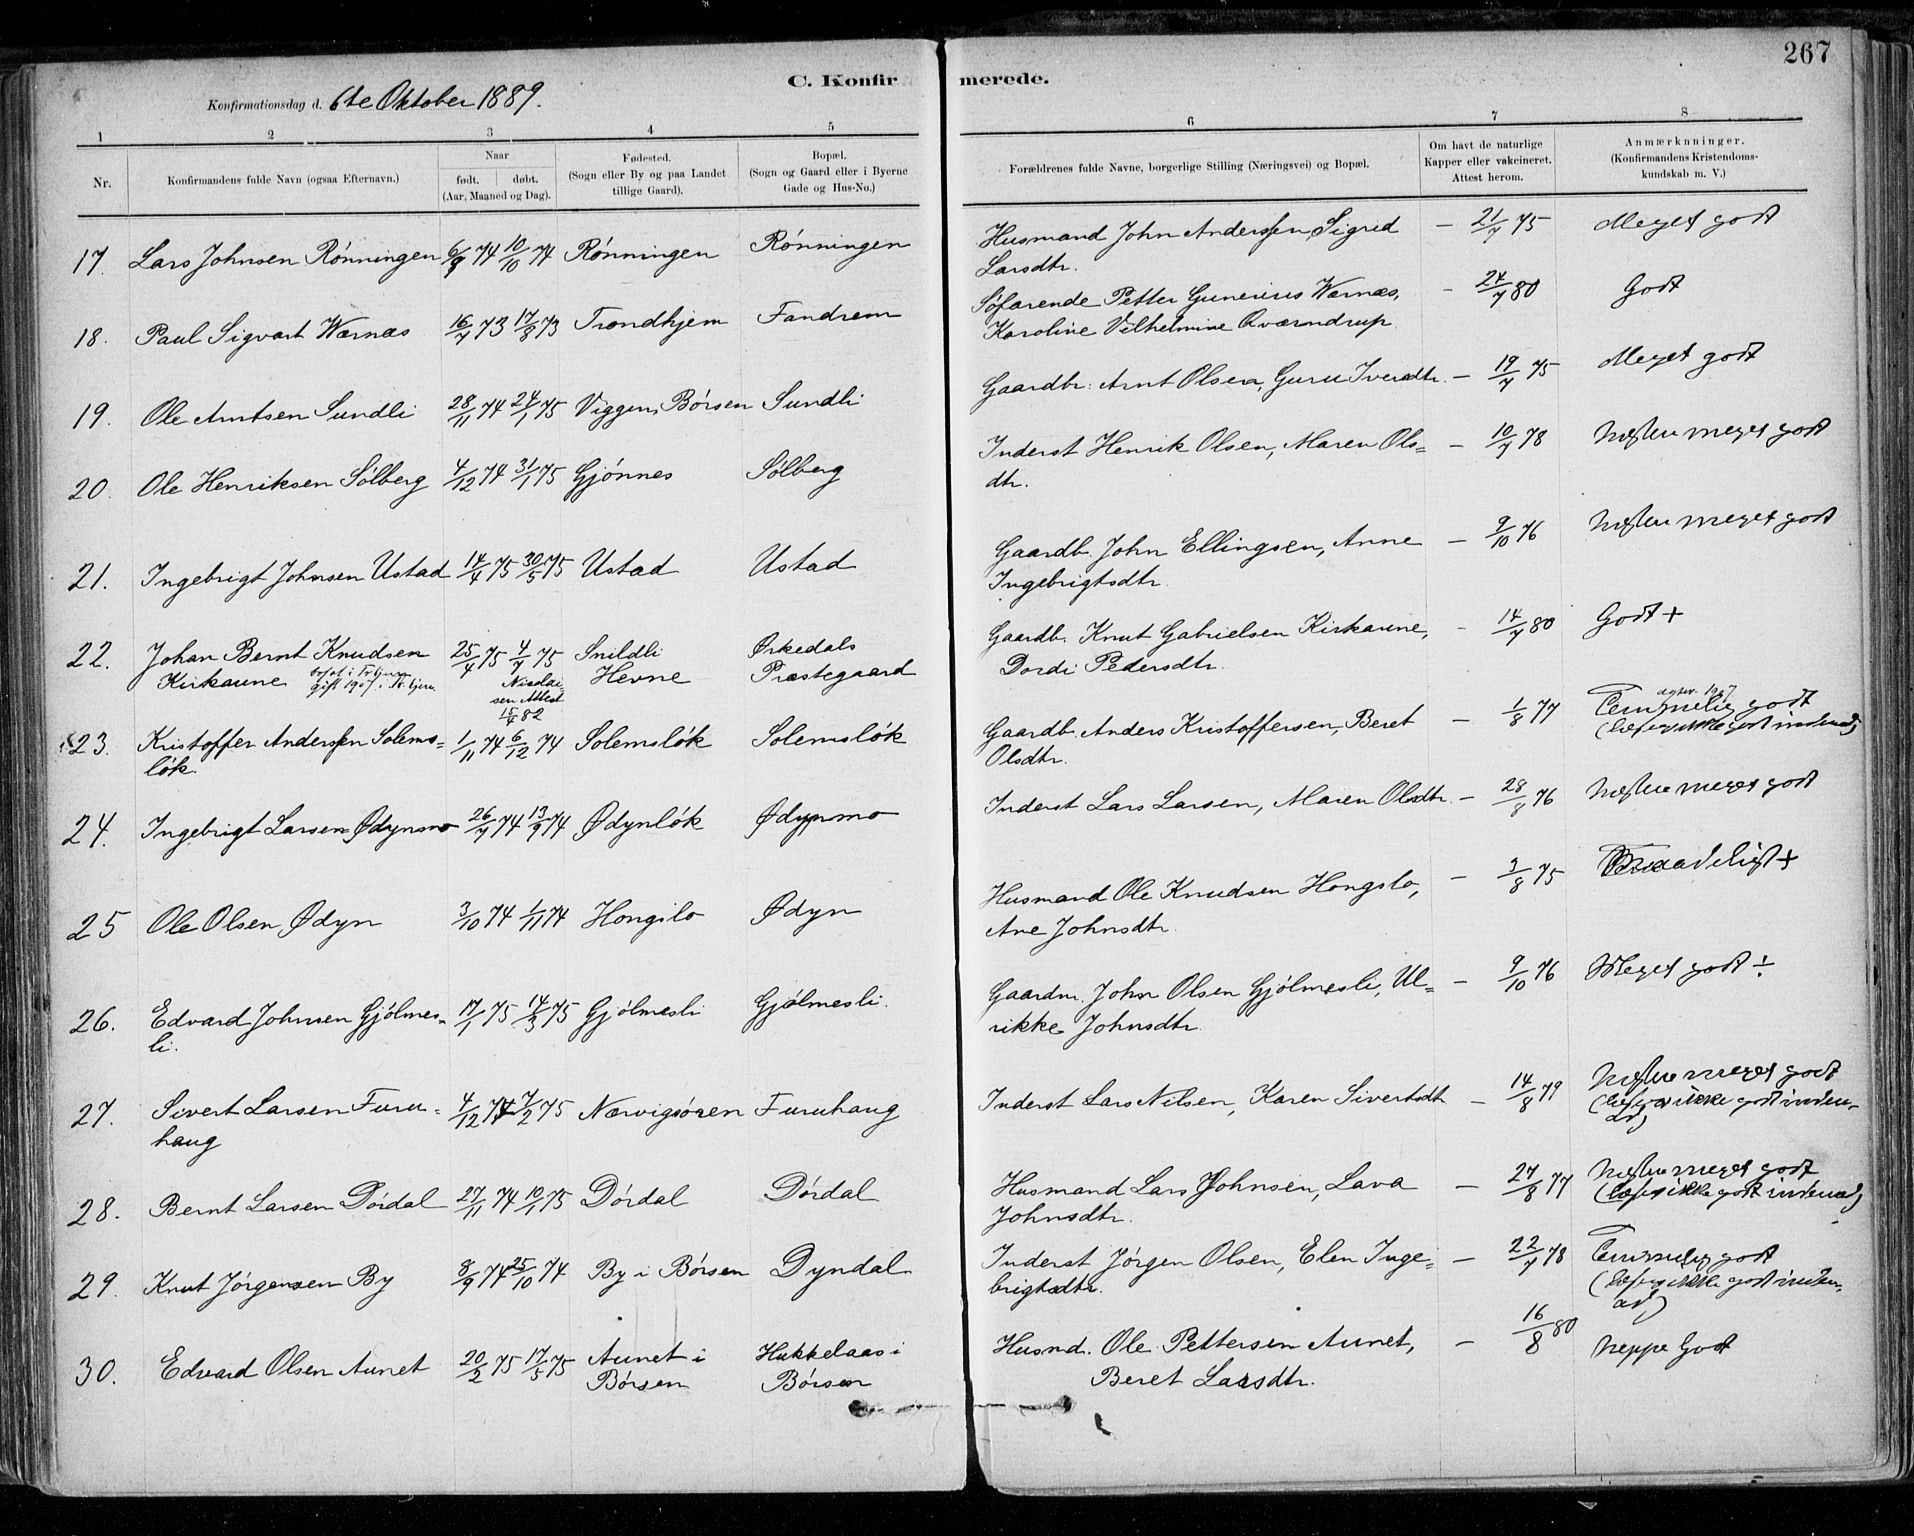 267
C. Konfirmerede.
Konfirmationsdag d. 6te Oktober 1889.
1 2 3 4 5 6 7 8
Nr. Konfirmandens fulde Navn (ogsaa Efternavn.) Naar født. døbt. (Aar, Maaned og Dag). Fødested. (Sogn eller By og paa Landet tillige Gaard). Bopæl. (Sogn og Gaard eller i Byerne Gade og Hus-No.) Forældrenes fulde Navne, borgerlige Stilling (Næringsvei) og Bopæl. Om havt de naturlige Kapper eller vakcineret. Attest herom. Anmærkninger. (Konfirmandens Kristendomskundskab m. V.)
17. Lars Johnsen Rønningen 6/9 74 10/10 74 Rønningen Rønningen Husmand John Anderssen, Sigrid – 21/7 75 Meget godt
Larsdtr.
18. Paul Sigvart Wærnæs 16/7 73 17/8 73 Trondhjem Fandrem Søfarende Petter Gunerius Wærnæs, – 24/7 80 Godt
Karoline Vilhelmine Qværndrup
19. Ole Arntsen Sundli 28/11 74 24/1 75 Viggen, Børsen Sundli Gaardbr. Arnt Olsen, Guru Iversdtr. – 19/7 75 Meget godt
20. Ole Henriksen Sølberg 4/12 74 31/1 75 Gjønnes Sølberg Inderst Henrik Olsen, Maren Ols= – 10/7 78 Næsten meget godt
dtr.
21. Ingebrigt Johnsen Ustad 14/4 75 30/5 75 Ustad Ustad Gaardb. John Ellingsen, Anne – 9/10 76 Næsten meget godt
Ingebrigtsdtr.
22. Johan Bernt Knudsen 25/4 75 4/7 75 Snildli Ørkedals Gaardb. Knut Gabrielsen Kirkaune, – 14/7 80 Godt +
Kirkaune Hevne Præstegaard Dordi Pedersdtr.
gift 1907 i
Nicolai=
sen Attest
15/4 82
23. Kristoffer Anderssen Solems= 1/11 74 6/12 74 Solemsløk Solemsløk Gaardb. Anders Kristoffersen, Beret – 1/8 77 Temmelig godt
løk. Olsdtr. (læser ikke godt indenad)
24. Ingebrigt Larsen Ødynmo 26/7 74 13/9 74 Ødynløk Ødynmo Inderst Lars Larsen, Maren Olsdtr. – 28/8 76 Næsten meget godt
25 Ole Olsen Ødyn 3/10 74 1/11 74 Hongslo Ødyn Husmand Ole Knudsen Hongslo, – 3/8 75
Ane Johnsdtr.
26. Edvard Johnsen Gjølmes= 17/1 75 14/3 75 Gjølmesli Gjølmesli. Gaardm. John Olsen Gjølmesli, Ul= – 9/10 76 Meget godt ÷
li. rikke Johnsdtr.
27. Sivert Larsen Furu= 4/12 74 7/2 75 Nærvigsøren Furuhaug Inderst Lars Nilsen, Karen Sivertsdtr. – 14/8 79 Næsten meget godt
haug (læser ikke godt inden=
ad)
28. Bernt Larsen Dørdal 27/11 74 10/1 75 Dørdal Dørdal Husmand Lars Johnsen, Lava – 27/8 77 Næsten meget godt
Johnsdtr. (læser ikke godt indenad)
29. Knut Jørgensen By 8/9 74 25/10 74 By i Børsen Dyndal Inderst Jørgen Olsen, Elen Inge= – 22/7 78 Temmelig godt
brigtsdtr. (læser ikke godt inden=
ad)
30. Edvard Olsen Aunet 20/2 75 17/5 75 Aunet i Hukkelaas i Husmd. Ole Pettersen Aunet, – 16/8 80 neppe Godt
Børsen Børsen Beret Larsdtr.